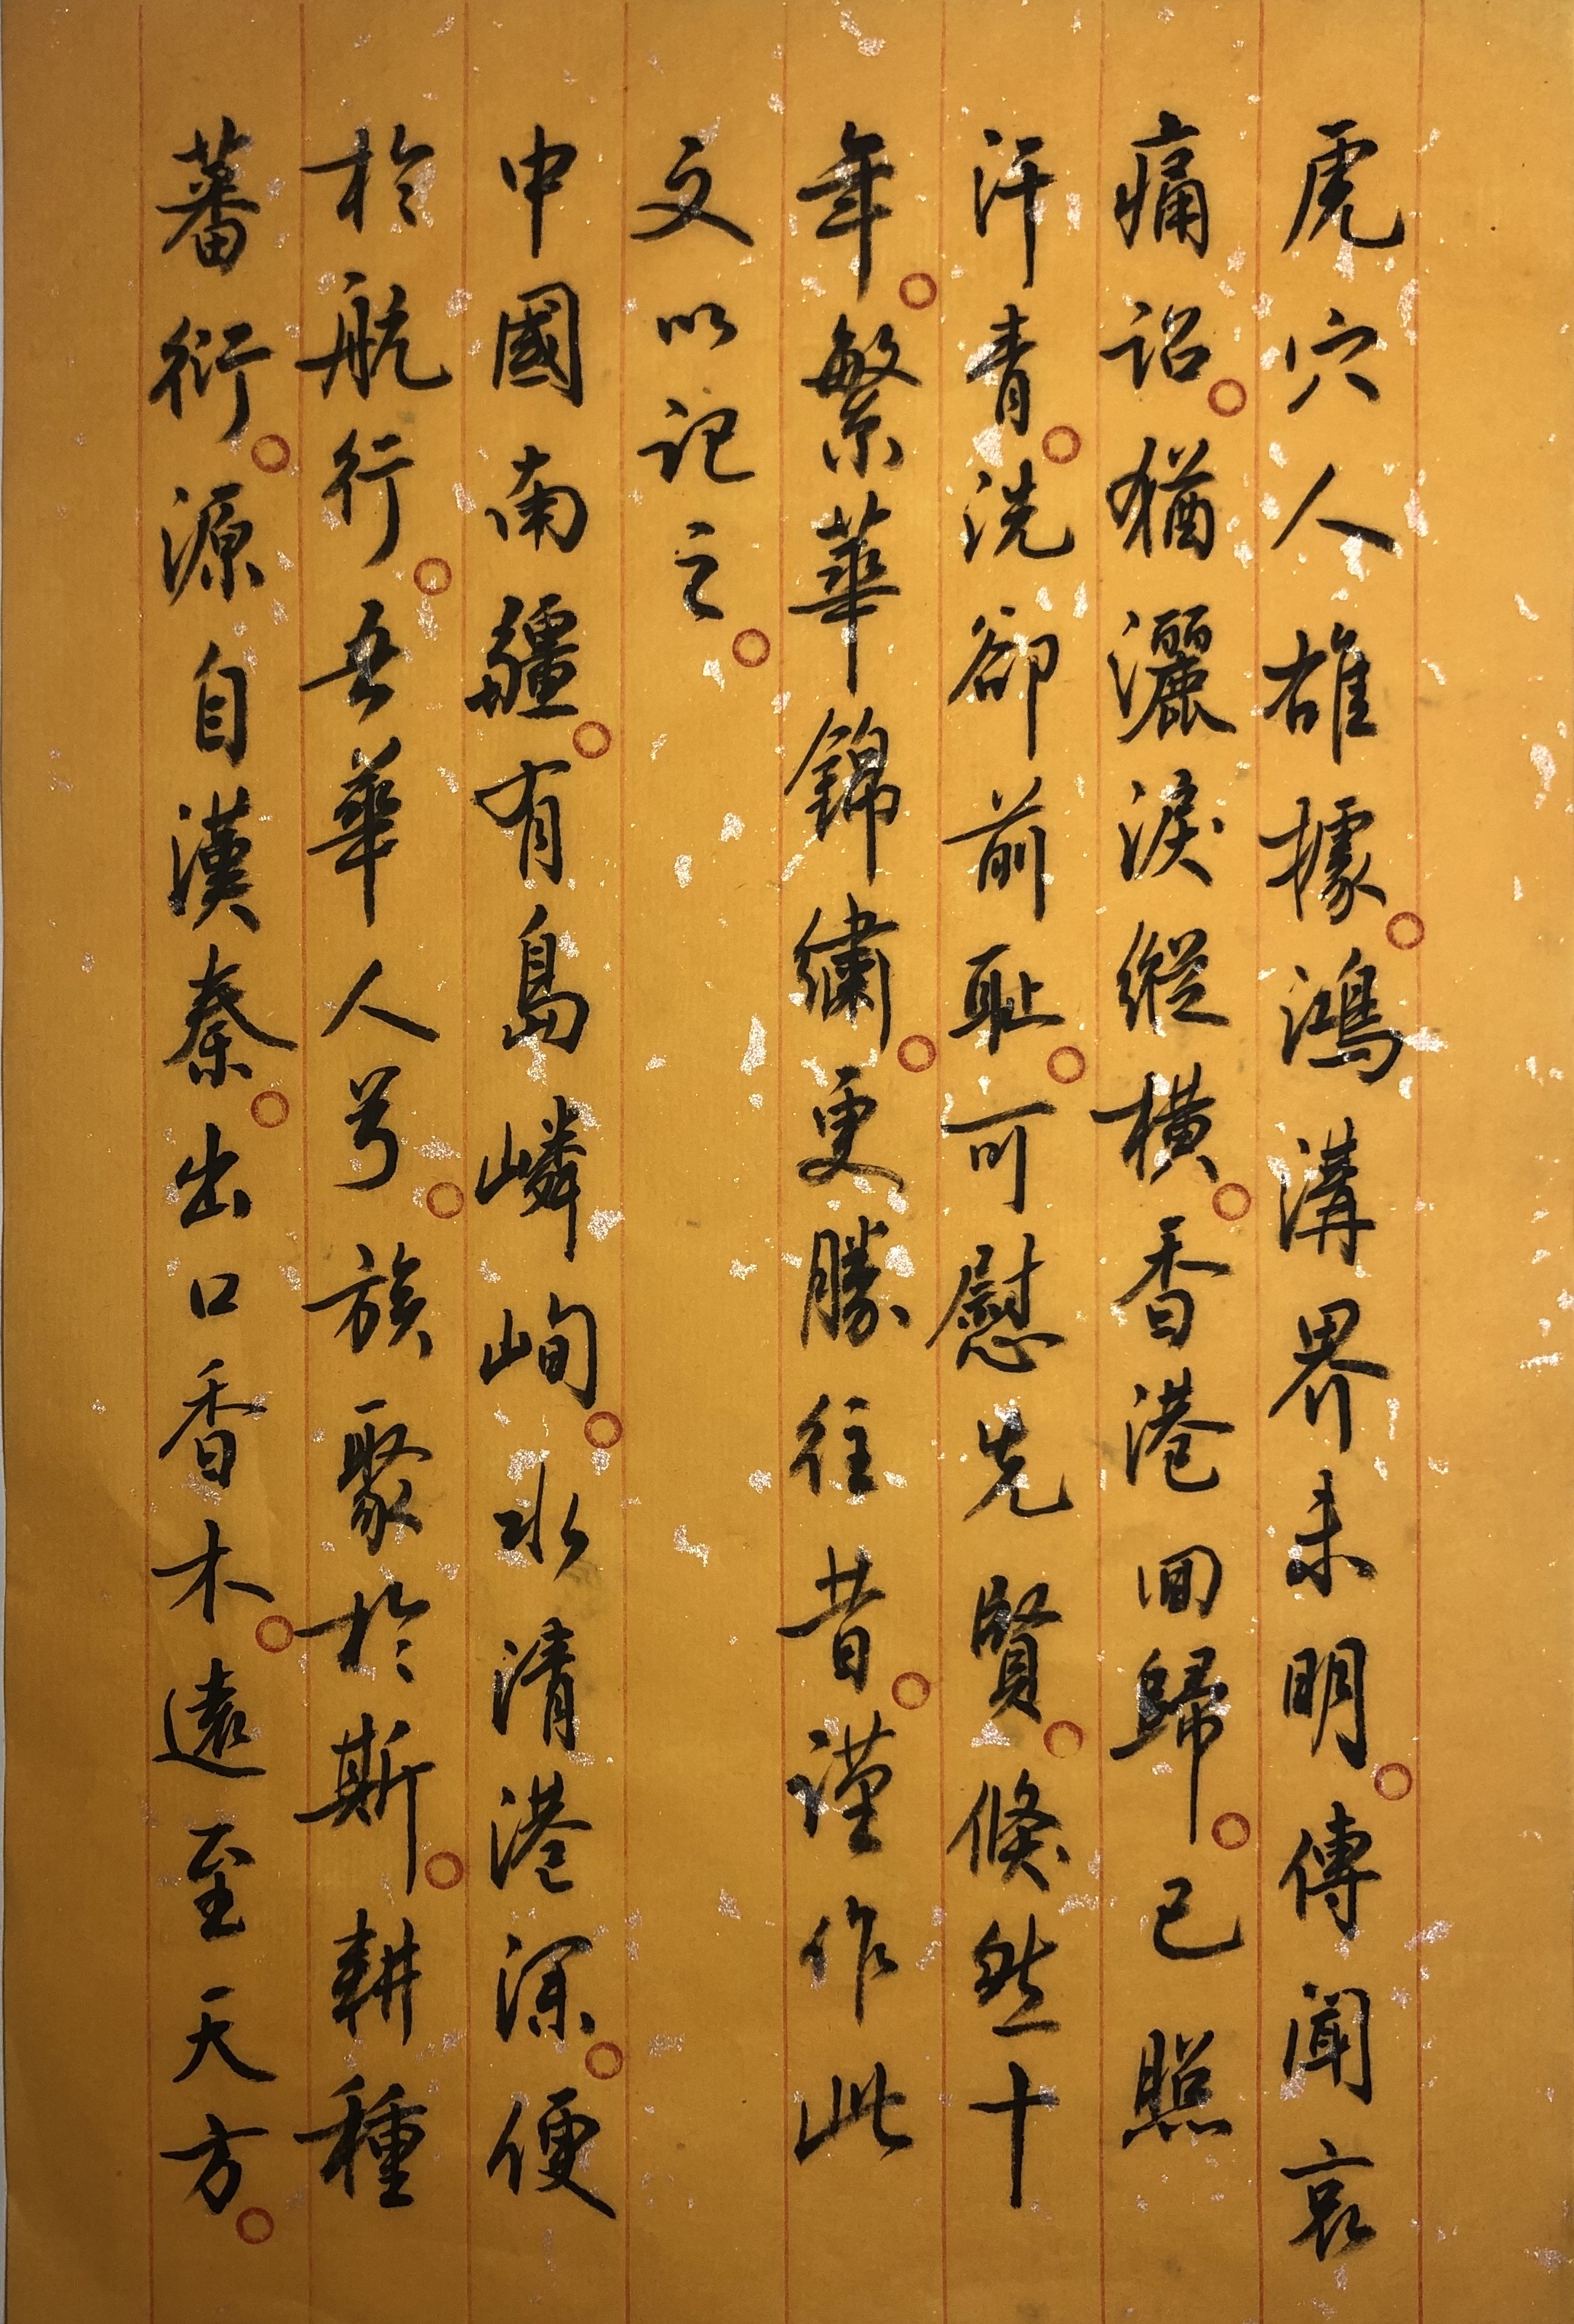 虎穴人雄據。鴻溝界未明。傳聞哀
痛詔。猶灑淚縱橫。香港回歸。已照
汗青。洗卻前恥。可慰先賢。倏然十
年。繁華錦繡。更勝往昔。謹作此
文以記之。
中國南疆。有島嶙峋。水清港深。便
於航行。吾華人兮。族聚於斯。耕種
蕃衍。源自漢秦。出口香木。遠至天方。